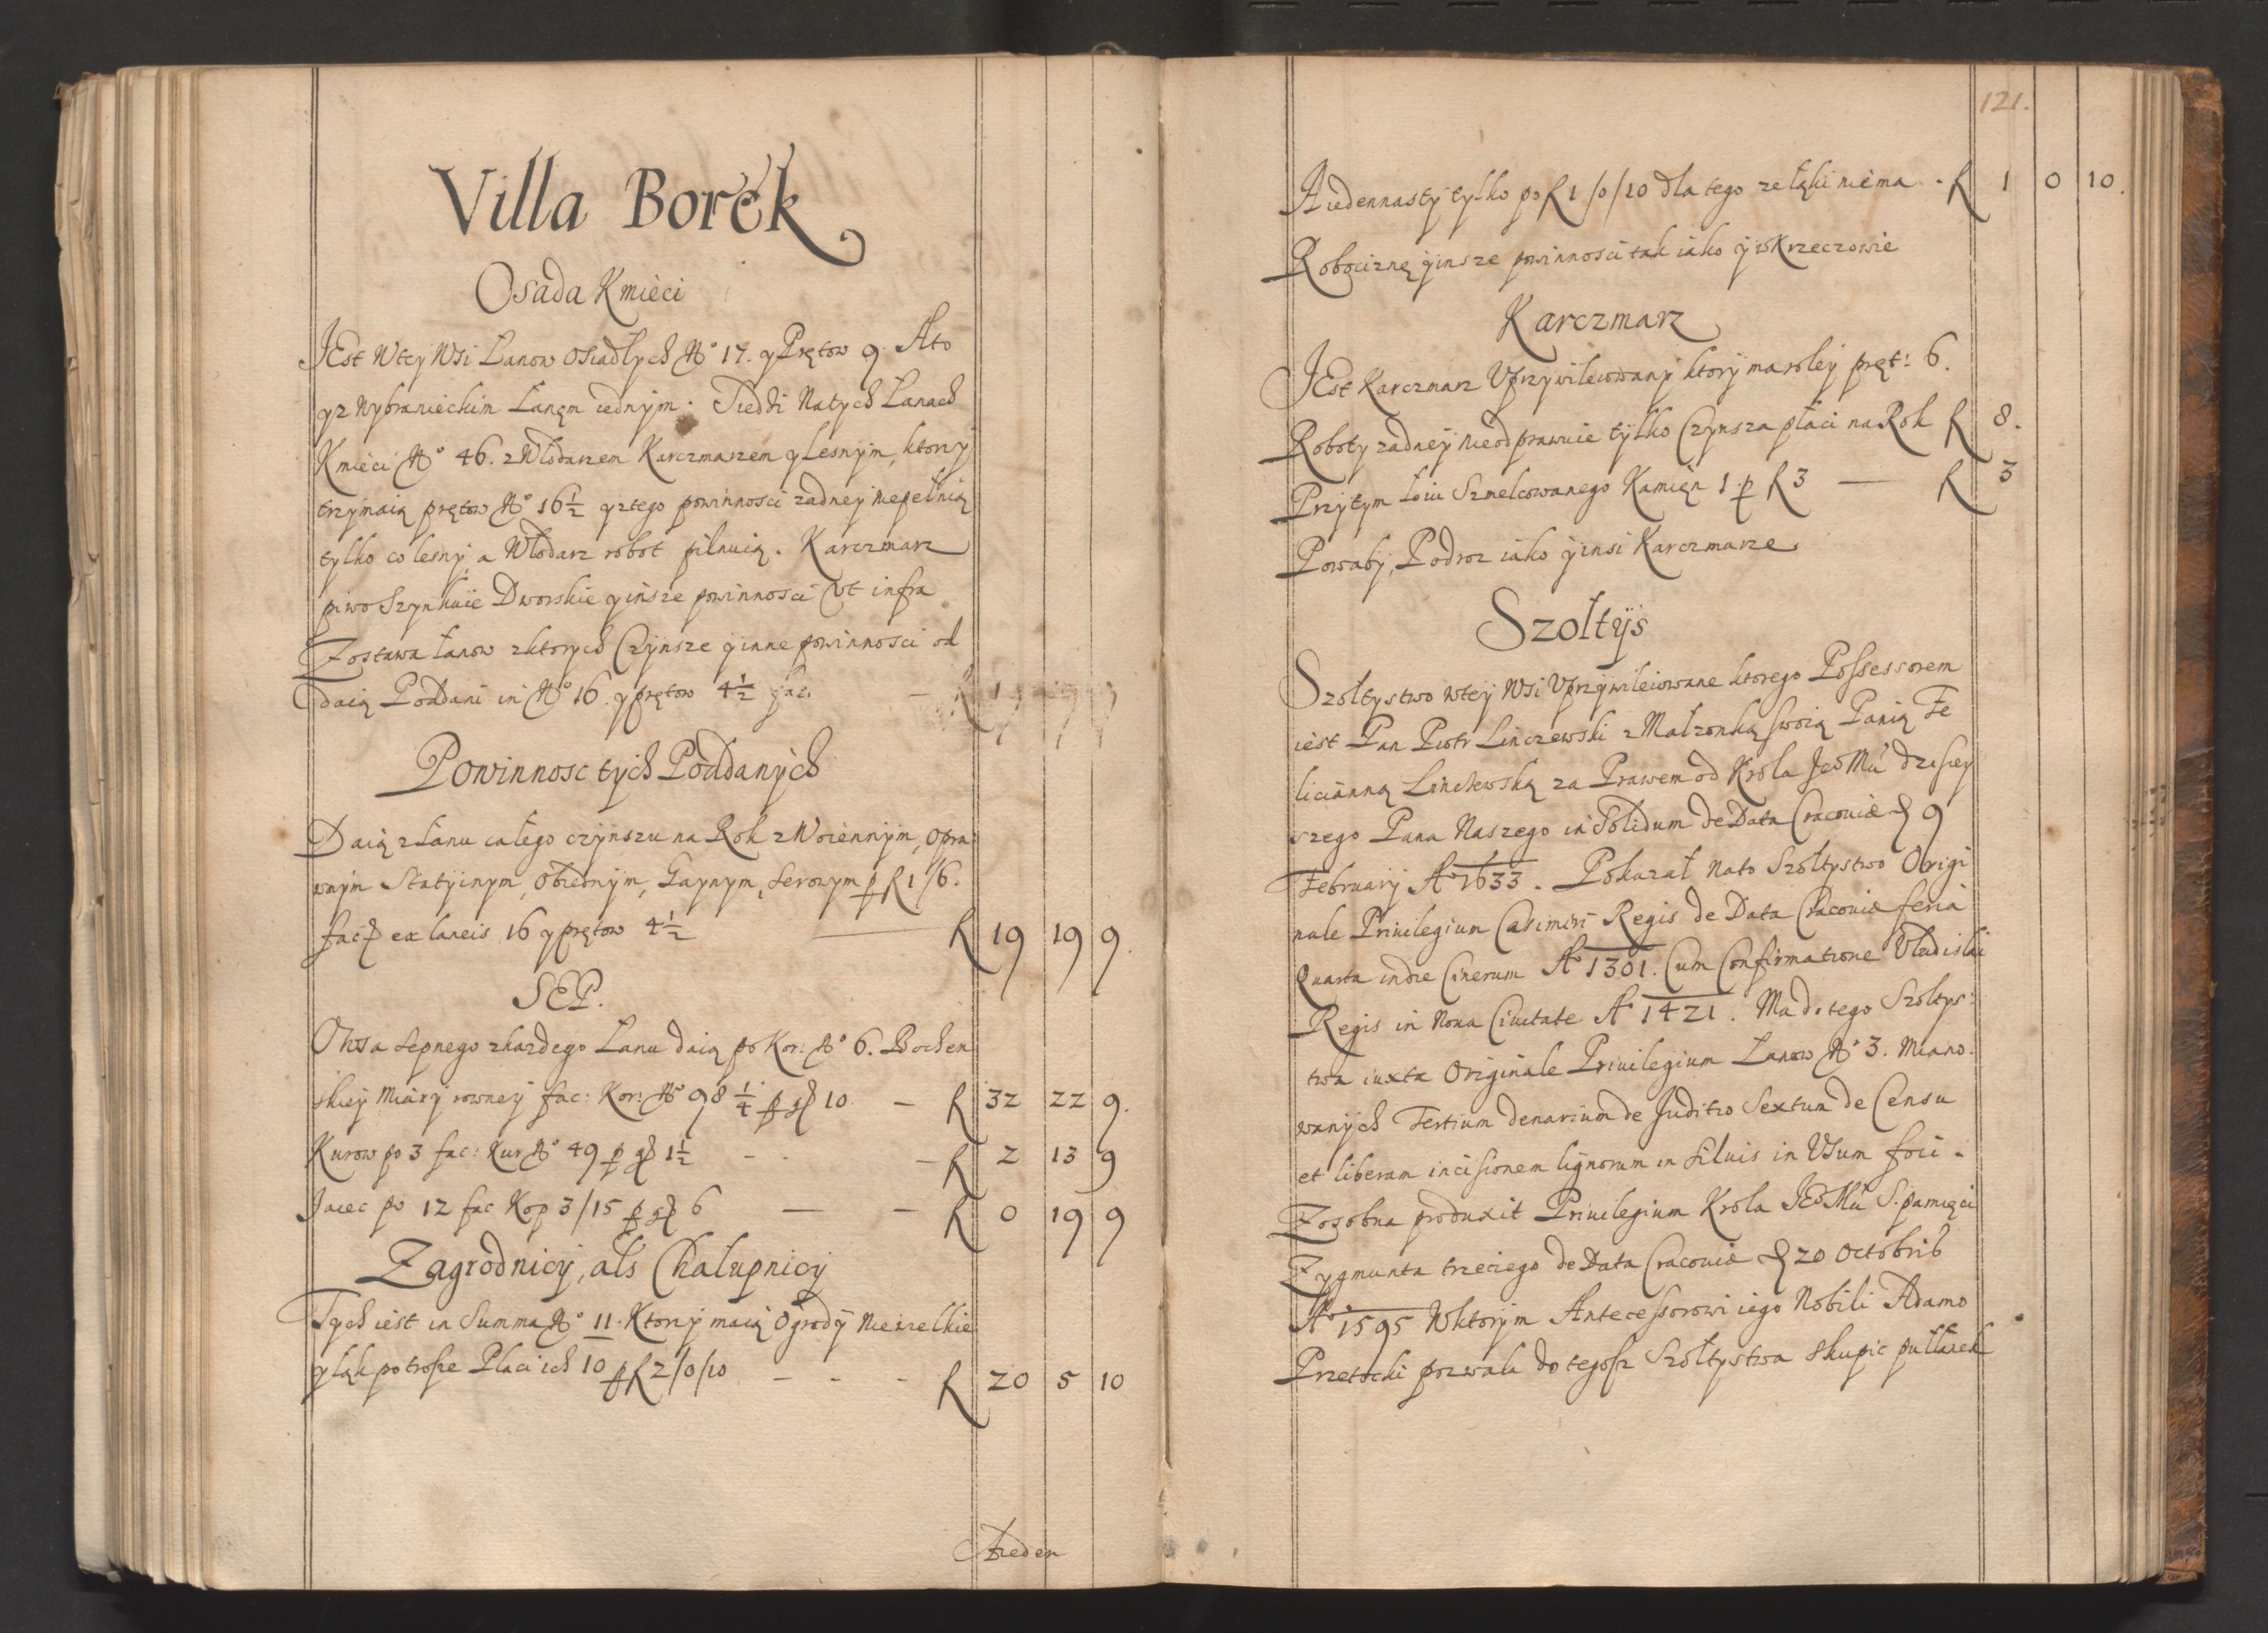 Villa Borek
Osada Kmieci
JEst Wtey Wsi Lanow Osiadlych No 17. y Prętow 9. Ato
yz Wybranieckim Lanem iednym. Siedzi Natych Lanach
Kmieci No 46. z Wlodarzem Karczmarzem y Lesnym, ktorzy
trzymaią prętow No 16½ yztego powinnosci zadney niepełnią
tylko co lesny, a Włodarz robot pilnuią. Karczmarz
piwo Szynkuie Dworskie y insze powinnosci Vt infra
Zostawa łanow zktorych Czynsze y inne powinnosci od
daią Poddani in No 16. y prętow 4½ fac.
Powinnosc tych Poddanych
Daią z Łanu całego czynszu na Rok z Woiennym, Opra
wnym Statyinym, Obiednym, Gaynym, Serowym p R 1/6.
fac ex laneis 16 y prętow 4½ — R 19 19 9.
SEP.
Owsa Sepnego zkazdego Lanu daią po Kor: No 6. Bochen
skiey Miary rowney fac: Kor: No 98¼ p gl 10 — R 32 22 9.
Kurow po 3 fac: Kur No 49 p gl 1½ - - - R 2 13 9
Jaiec po 12 fac Kop 3/15 p gl 6 — - R 0 19 9
Zagrodnicy, als Chalupnicy
Tych iest in Summa No 11. Ktorzy maią Ogrody Niewielkie
y Ląk po trosze Płaci ich 10 p R 2/0/10 - - - R 20 5 10
A ieden
121.
A iedennasty tylko po R 1/0/10 dla tego ze łąki niema. R 1 0 10.
Robociznę y insze powinnosci tak iako y w Krzeczowie
Karczmarz
JEst Karczmarz Vprzywileiowany ktory ma roley pręt: 6.
Roboty zadney nieodprawuie tylko Czynsza płaci na Rok R 8.
Przytym Łoiu Szmelcowanego Kamięn 1. p R 3 — R 3
Powaby, Podroz iako y insi Karczmarze
Szołtys
Szołtystwo wtey Wsi Vprzywileiowane ktorego Possessorem
iest Pan Piotr Linczewski z Małzonką swoią Panią Fe
licianną Linczewską za Prawem od Krola Jeo Mci dzisiey
szego Pana Naszego in Solidum de Data Cracouiæ d 9
February Ao 1633. Pokazał Nato Szołtystwo Origi
nale Priuilegium Casimiri Regis de Data Cracouiæ feria
Quarta in die Cinerum Ao 1301. Cum Confirmatione Vladislai
Regis in Noua Ciuitate Ao 1421. Ma do tego Szołtys:
twa iuxta Originale Priuilegium Lanow No 3. Miano:
wanych Tertium denarium de Juditio Sextum de Censu
et liberam incisionem lignorum in siluis in Vsum foci.
Zosobna produxit Priuilegium Krola JEo Mci S. pamięci
Zygmunta trzeciego de Data Cracouiæ d 20 Octobrib
Ao 1595 Wktorym Antecessorowi iego Nobili Adamo
Przetocki pozwala do tegosz Szołtystwa skupic pułłanek